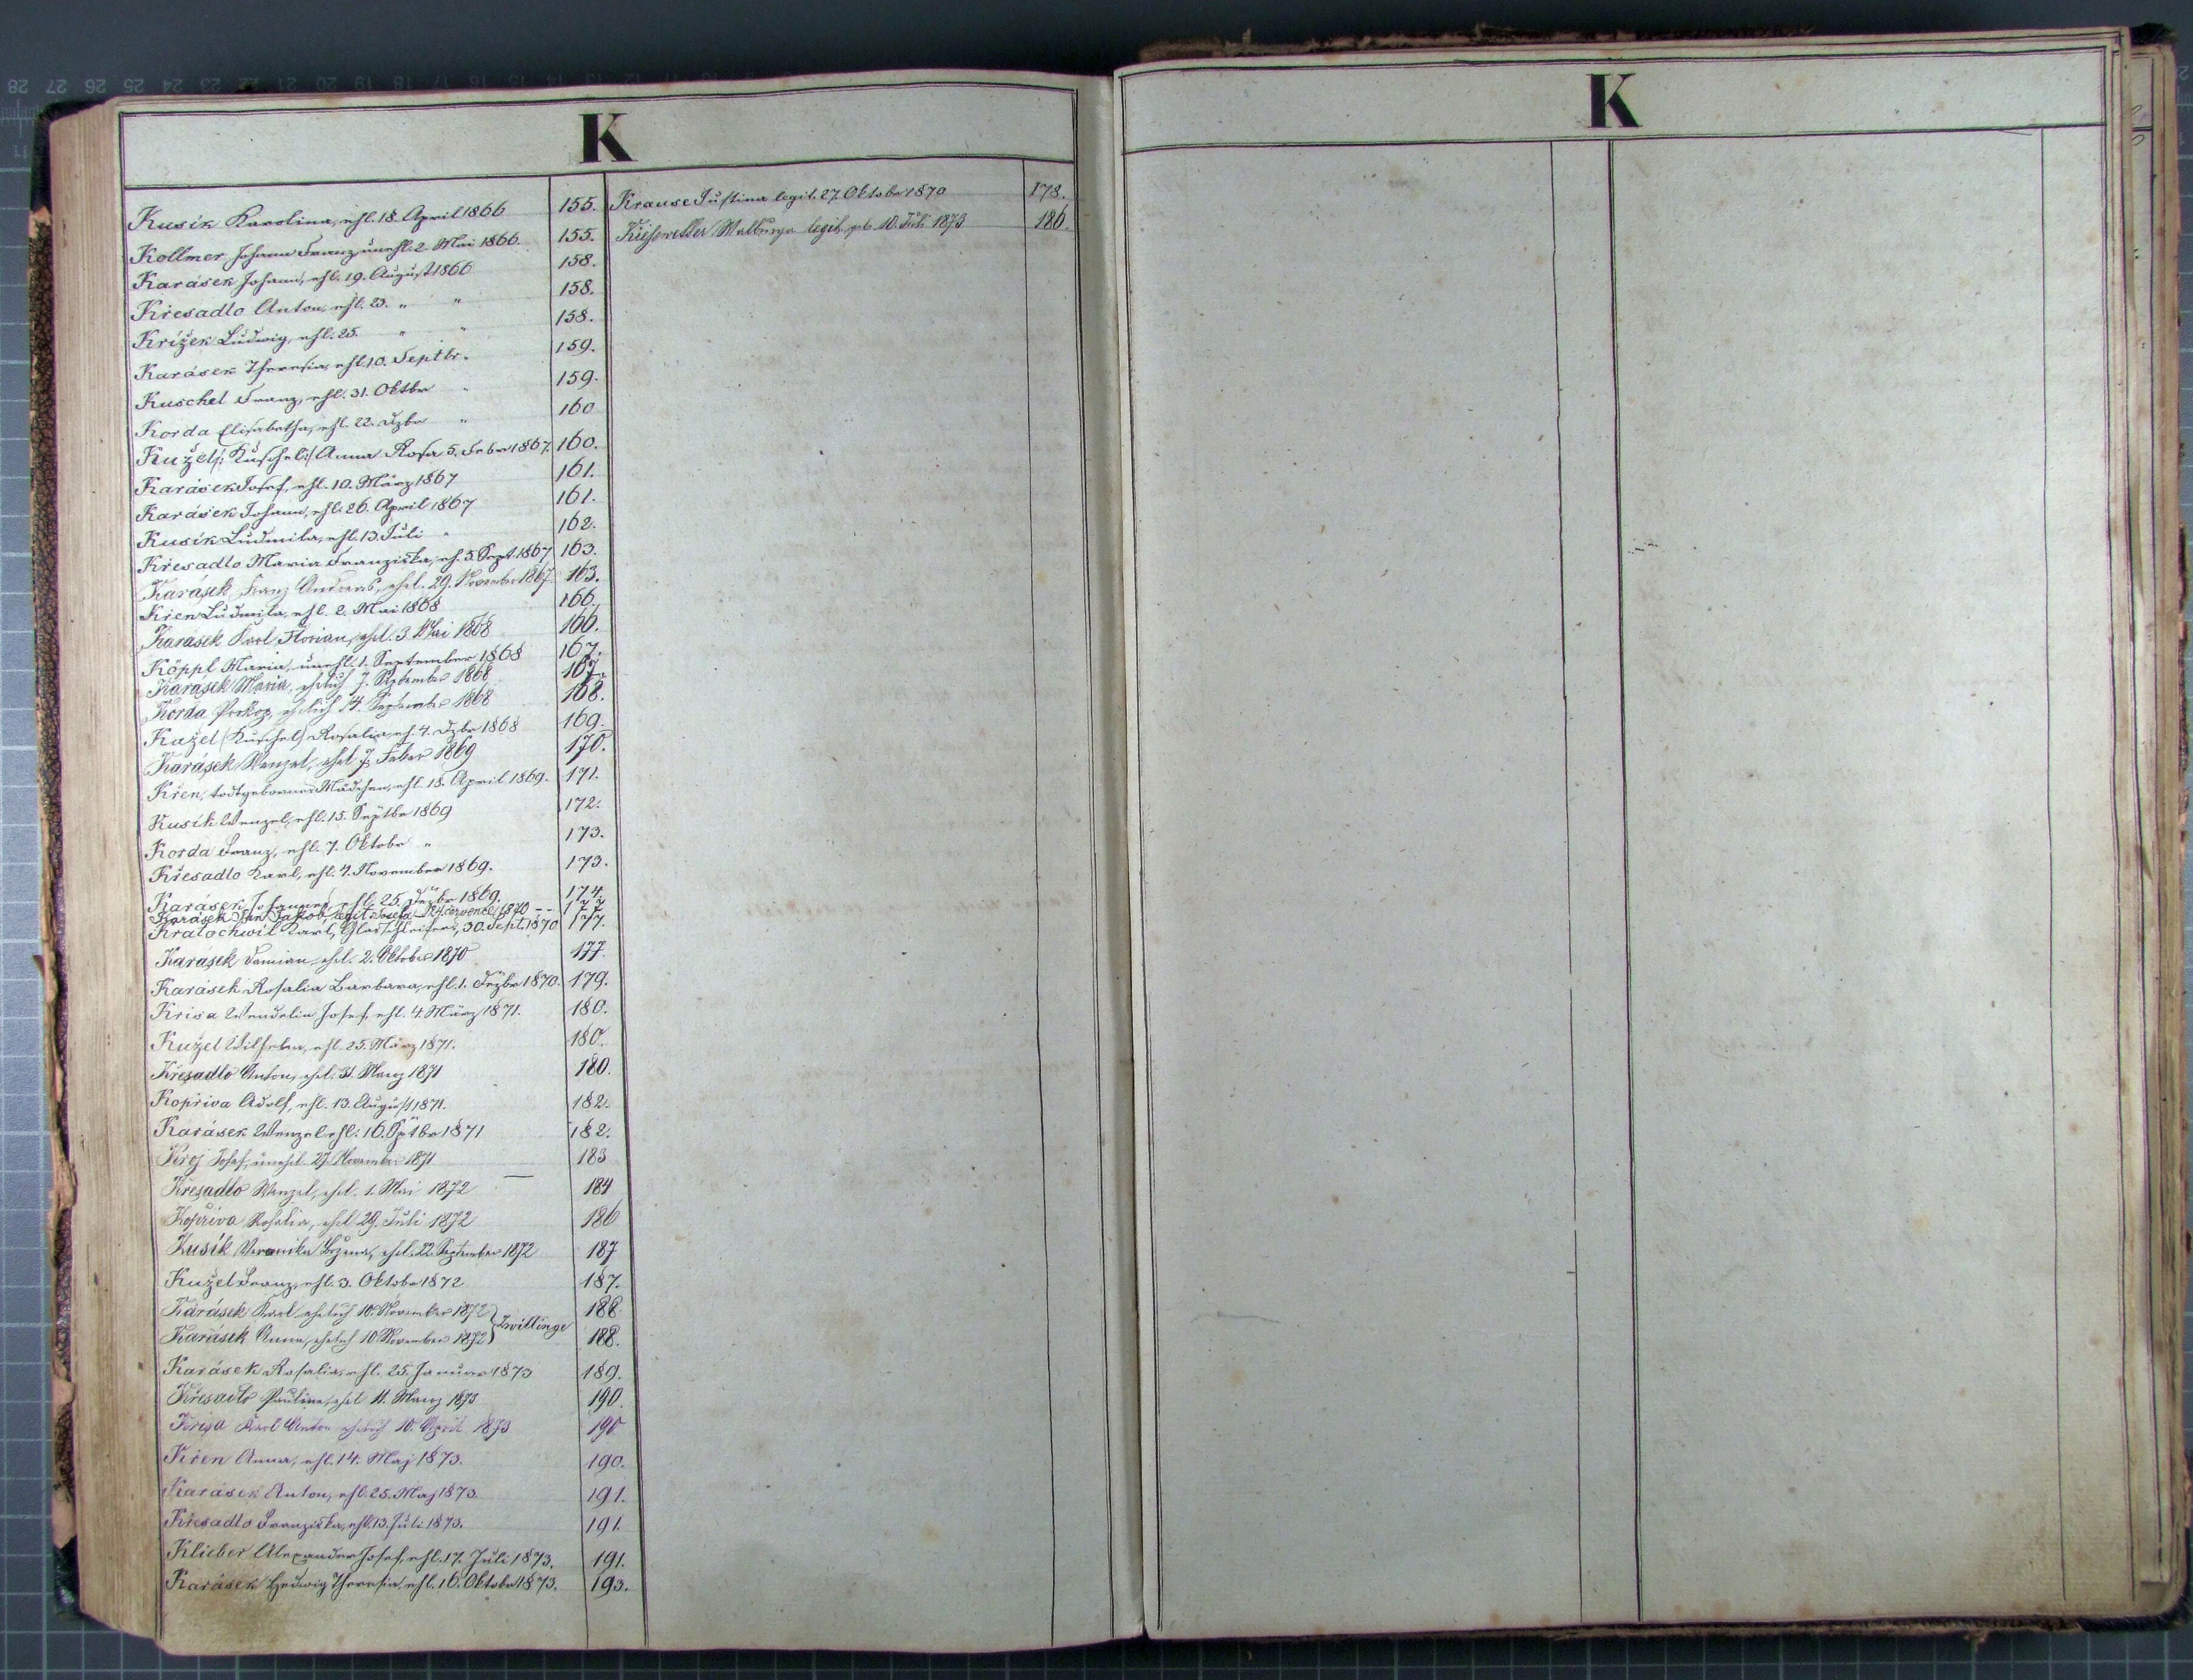 K
Kusík Karolina, ehl. 18. April 1866 155.
Kollmer Johann Franz unehl. 2. Mai 1866. 155.
Karásek Johann, ehl. 19. August 1866 158.
Křesadlo Anton, ehl. 23. " " 158.
Křižek Ludwig, ehl. 25. " " 158.
Karásek Theresia, ehl. 10. Septbr. 159.
Kuschel Franz, ehl. 31. Oktbr " 159.
Korda Elisabetha, ehl. 22. Dzbr " 160
Kužel /: Kuschel :/ Anna Rosa 5. Febr 1867. 160.
Karásek Josef, ehl. 10. März 1867 161.
Karásek Johann, ehl. 26. April 1867 161.
Kusík Ludmila, ehl. 13. Juli " 162.
Křesadlo Maria Franziska, eh. 5. Sept. 1867 163.
Karásek Franz Andreas, ehel. 29. November 1867. 163.
Křen Ludmila, ehl. 2. Mai 1868 166.
Karásek Karl Florian, ehel. 3. Mai 1868 166.
Köppl Maria, unehl. 1. September 1868 167.
Karásek Maria, ehelich 7. September 1868 167.
Korda Prokop, ehelich 14. September 1868 168.
Kužel (Kuschel) Rosalia, eh. 4. Dzbr 1868 169.
Karásek Wenzel, ehel 7. Feber 1869 170.
Křen, todtgebornes Mädchen, ehl. 18. April 1869. 171.
Kusík Wenzel, ehl. 15. Septbr 1869 172.
Korda Franz, ehl. 7. Oktobr " 173.
Křesadlo Karl, ehl. 4. November 1869. 173.
Karásek Johannes, ehl. 25. Dezbr 1869. 174
Karásek Jan Jakob, legit. Josefa července 1870 -- 177
Kratochwil Karl, Glasschleifers, 30. Sept. 1870 177.
Karásek Damian, ehel. 2. Oktober 1870 177.
Karásek Rosalia Barbara, ehl. 1. Dezbr 1870. 179.
Krisa Wendelin Josef, ehl. 4. März 1871. 180.
Kužel Wilhelm, ehl. 25. März 1871. 180.
Křesadlo Anton, ehel. 31. Maerz 1871 180.
Kopřiva Adolf, ehl. 13. August 1871. 182.
Karásek Wenzel ehl. 16. Sptbr 1871 182.
Kroj Josef, unehel. 27. November 1871 183
Křesadlo Wenzel, ehel. 1. Mai 1872 184
Kopřiva Rosalia, ehel 29. Juli 1872 186
Kusík Veronika Božena, ehel. 22. September 1872 187
Kužel Franz, ehl. 3. Oktobr 1872 187.
Karásek Karl ehelich 10. November 1872 } Zwillinge 188.
Karásek Anna, ehelich 10. November 1872 188.
Karásek Rosalia, ehl. 25. Januar 1873 189.
Křesadlo Pauline, ehel 11. Maerz 1873 190.
Krisa Karl Anton ehelich 10. April 1873 190
Křen Anna, ehl. 14. Maj 1873. 190.
Karásek Anton, ehl. 25. Maj 1873 191.
Křesadlo Franziska, ehl. 13. Juli 1873. 191.
Klieber Alexander Josef, ehl. 17. Juli 1873. 191.
Karásek Hedwig Theresia, ehl. 16. Oktobr 1873. 193.
Krause Justina legit. 27. Oktober 1870 178.
Kieswetter Walburga legit. geb. 10. Juli 1873 186.
K